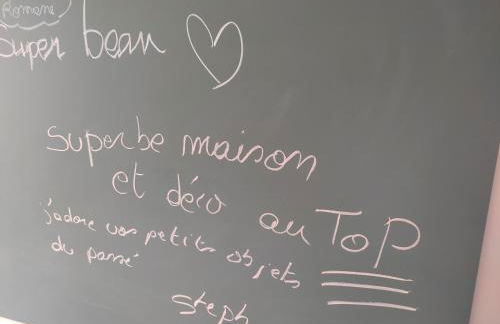 Romane
Super beau
superbe maison
et déco au TOP
j'adore vos petits objets
du passé
Steph